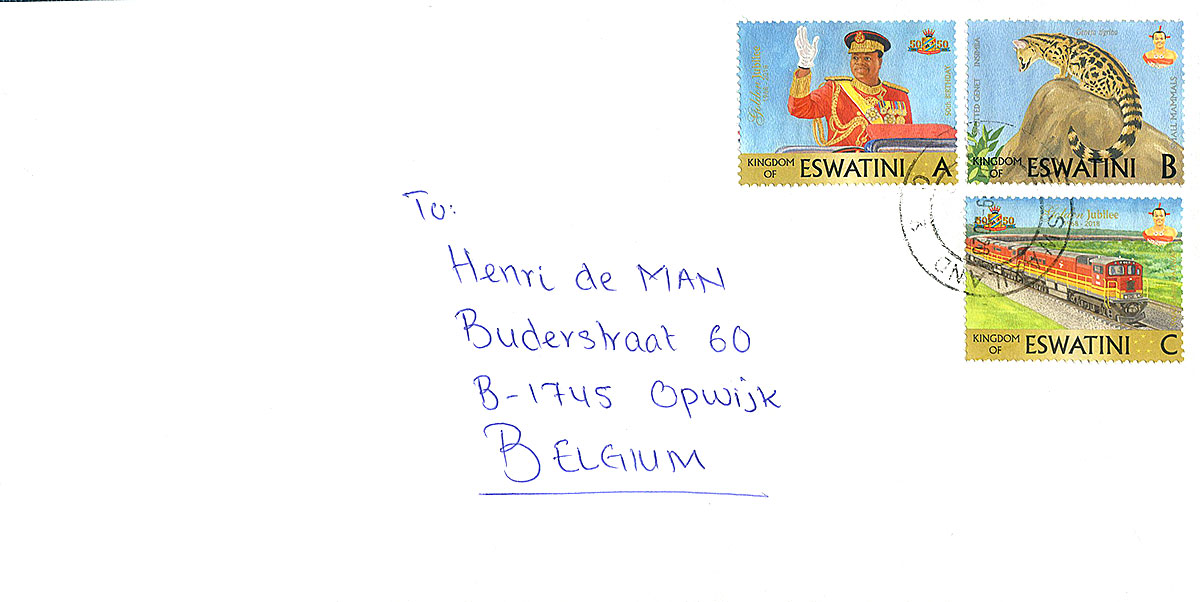 Golden Jubilee
1968 - 2018
50 50
50th BIRTHDAY
KINGDOM OF ESWATINI A
Geneta tigrina
INSIMBA
SMALL MAMMALS
KINGDOM OF ESWATINI B
50 50
Golden Jubilee
1968 - 2018
KINGDOM OF ESWATINI C
SWAZILAND
To:
Henri de MAN
Buderstraat 60
B-1745 Opwijk
BELGIUM